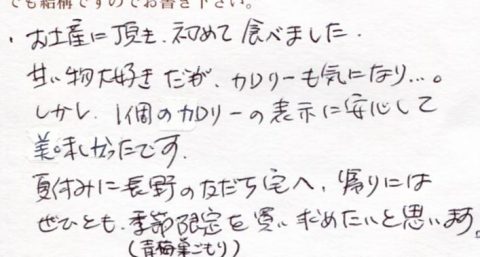 でも結構ですのでお書き下さい。
・お土産に頂き、初めて食べました.
甘い物大好きだが、カロリーも気になり…。
しかし、1個のカロリーの表示に安心して
美味しかったです.
夏休みに長野の友だち宅へ、帰りには
ぜひとも、季節限定を買い求めたいと思います。
(青梅巣ごもり)